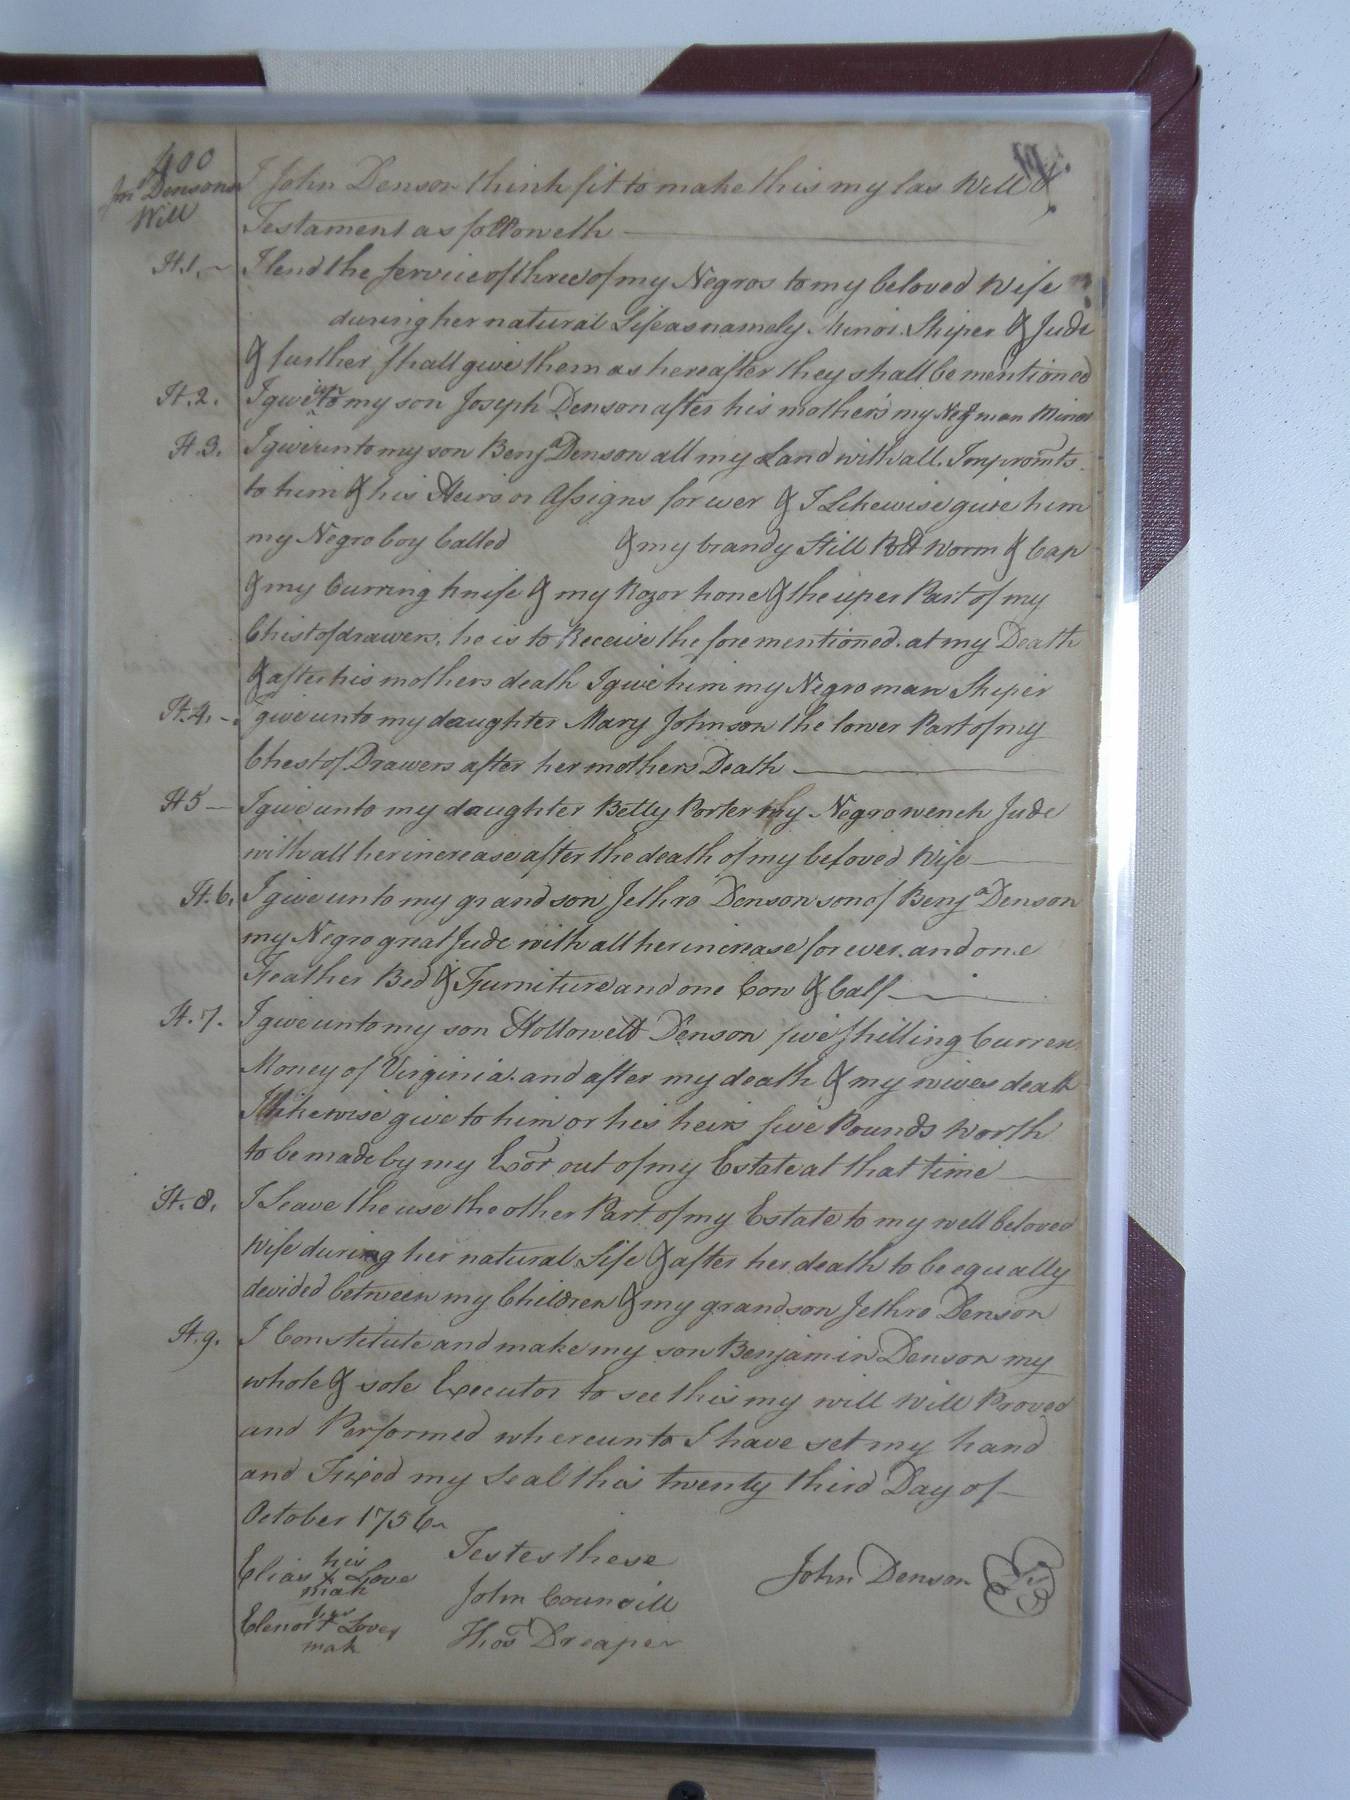 400
Jnº Densons
Will
I John Denson think fit to make this my las Will &
Testament as followeth
It. 1. I lend the service of three of my Negros to my beloved Wife
during her natural Life as namely Minor Skiper & Jude
& further shall give them as hereafter they shall be mentioned
It. 2. I give un to my son Joseph Denson after his mother's my Neg man Minor
It. 3. I give unto my son Benja Denson all my Land with all Impromts
to him & his Heirs or Assigns for wer & I Likewise give him
my Negro boy Called & my brandy Still Pot Worm & Cap
& my Curring knife & my Rozor hone & the uper Part of my
Chist of drawers, he is to Receive the fore mentioned at my Death
& after his mothers death I give him my Negro man Skiper
It. 4. I give unto my daughter Mary Johnson the lower Part of my
Chest of Drawers after her mothers Death
It 5 I give unto my daughter Betty Porter my Negro wench Jude
with all her increase after the death of my beloved Wife
It. 6. I give unto my grand son Jethro Denson son of Benja Denson
my Negro great Jude with all her increase for ever and one
Feather Bed & Furniture and one Cow & Calf
It. 7. I give unto my son Hollowell Denson five shilling Curren
Money of Virginia and after my death & my wives death
I likewise give to him or his heirs five Pounds Worth
to be made by my Exor out of my Estate at that time
It. 8. I Leave the use the other Part of my Estate to my well beloved
Wife during her natural Life & after her death to be equally
devided between my Children & my grandson Jethro Denson
It. 9. I Constitute and make my son Benjamin Denson my
whole & sole Executor to see this my will Will Proved
and Performed whereunto I have set my hand
and Fixed my Seal this twenty third Day of
October 1756
Testes these
Elias his X mak Love
John Councill
John Denson
Elenor her + mak Love
Thos Dreaper